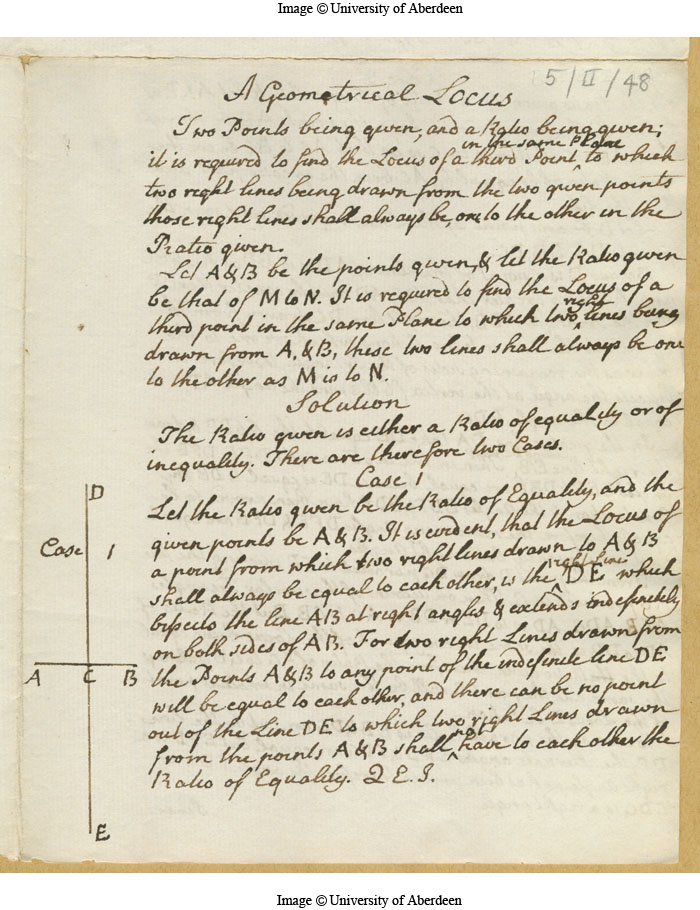 Image © University of Aberdeen
5/II/48
A Geometrical Locus
Two Points being given, and a Ratio being given;
in the same Plane
it is required to find the Locus of a third Point ^ to which
two right lines being drawn from the two given points
those right lines shall always be, one to the other in the
Ratio given.
Let A & B be the points given, & let the Ratio given
be that of M to N. It is required to find the Locus of a
right
third point in the same Plane to which two ^ lines being
drawn from A, & B, these two lines shall always be one
to the other as M is to N.
Solution
The Ratio given is either a Ratio of equality or of
inequality. There are therefore two Cases.
Case 1
Let the Ratio given be the Ratio of Equality, and the
given points be A & B. It is evident, that the Locus of
a point from which two right lines drawn to A & B
right line
shall always be equal to each other, is the ^ DE which
bissects the line AB at right angles & extends indefinitely
on both sides of AB. For two right Lines drawn from
the Points A & B to any point of the indefinite line DE
will be equal to each other, and there can be no point
out of the Line DE to which two right Lines drawn
from the points A & B shall ^ have to each other the
Ratio of Equality. Q. E. I.
D
Case 1
A C B
E
Image © University of Aberdeen